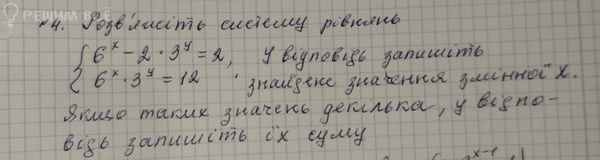 РЕШИМ ВСЁ
№4. Розв'яжіть систему рівнянь
{ 6^x - 2 · 3^y = 2, У відповідь запишіть
{ 6^x · 3^y = 12 знайдене значення змінної x.
Якщо таких значень декілька, у відпо-
відь запишіть їх суму